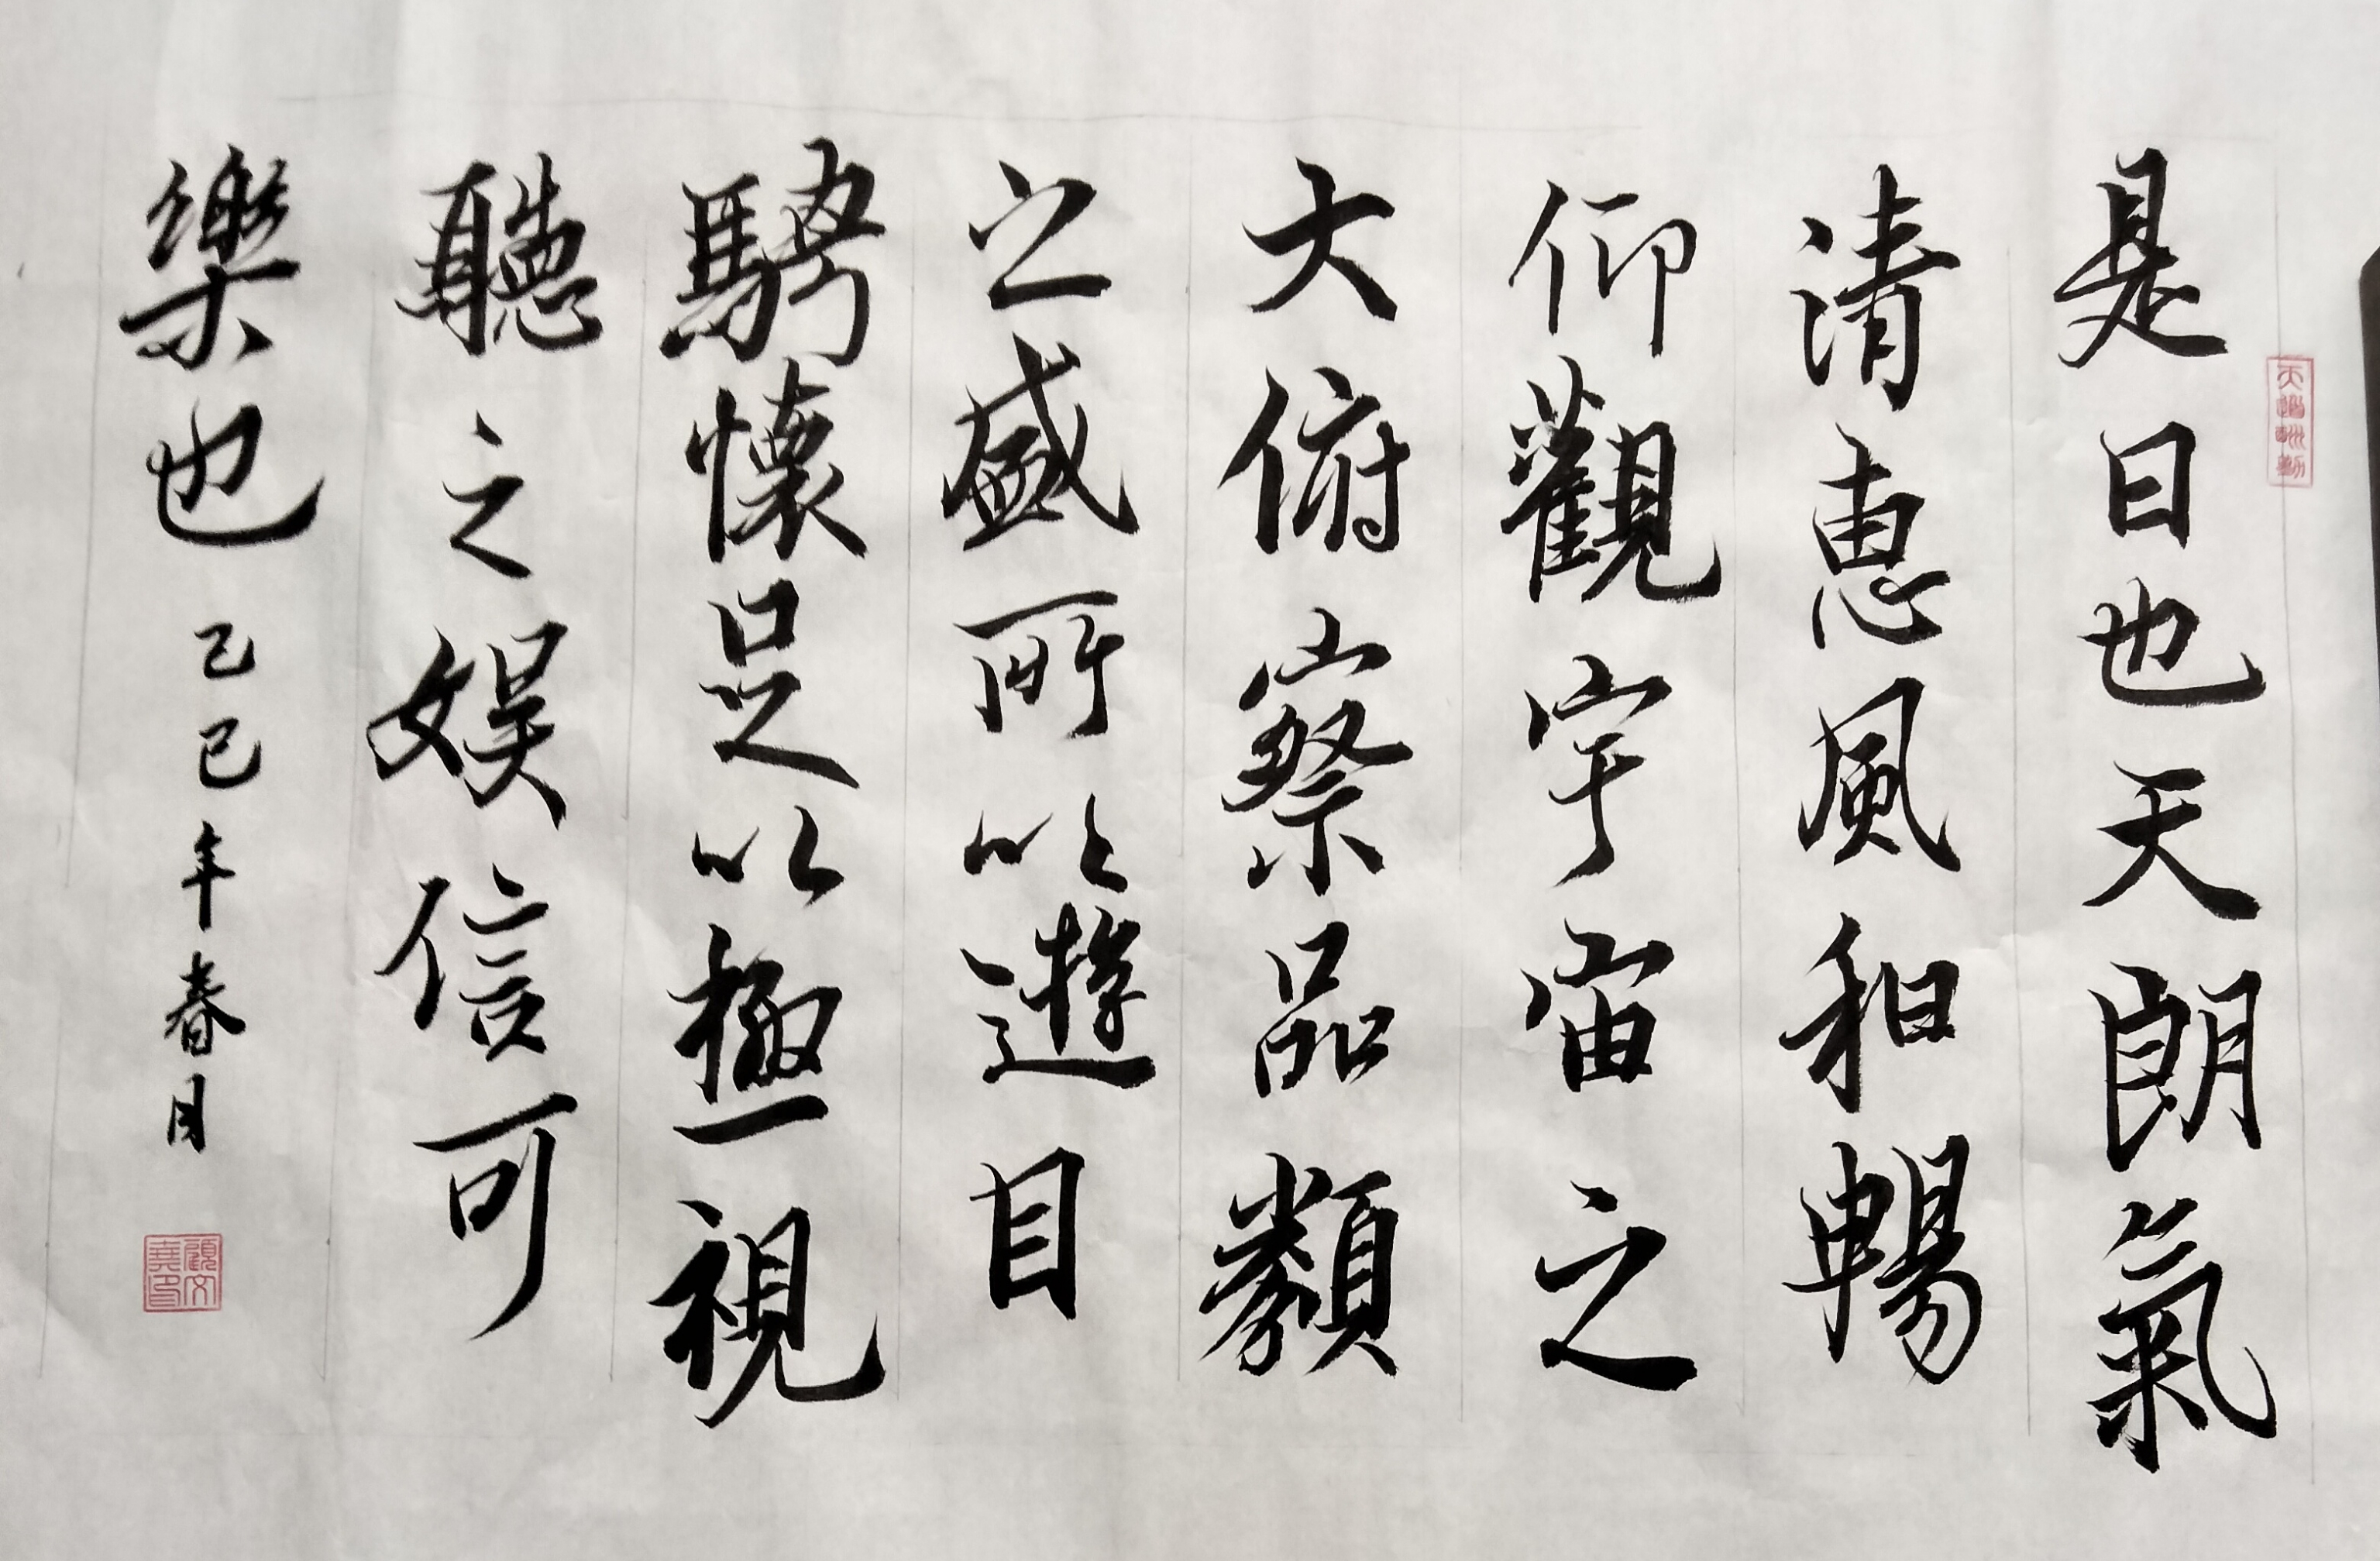 是日也天朗氣
清惠風和暢
仰觀宇宙之
大俯察品類
之盛所以遊目
騁懷足以極視
聽之娛信可
樂也
乙巳年春月
天道酬勤